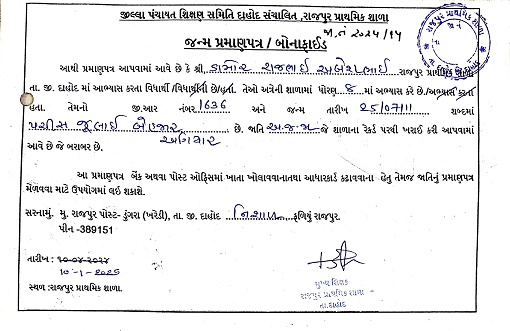 જીલ્લા પંચાયત શિક્ષણ સમિતિ દાહોદ સંચાલિત ,રાજપુર પ્રાથમિક શાળા
જા.નં ૨૦૨૫/૧૫
જન્મ પ્રમાણપત્ર / બોનાફાઈડ
આથી પ્રમાણપત્ર આપવામાં આવે છે કે શ્રી ડામોર રાજભાઈ રાજપુર પ્રાથમિક
તા. જી. દાહોદ માં અભ્યાસ કરતા વિધાર્થી /વિધાર્થીની છે/હતા. તેઓ અત્રેની શાળામાં ધોરણ 8 માં અભ્યાસ કરે છે./અભ્યાસ કરતા
હતા. તેમનો જી.આર નંબર 1636 અને જન્મ તારીખ 25/07/11 શબ્દોમાં
પચીસ જુલાઈ બેહજાર છે. જાતિ અ.જ.જ જે શાળાના રેકર્ડ પરથી ખરાઈ કરી આપવામાં
અગિયાર
આવે છે જે બરાબર છે.
આ પ્રમાણપત્ર બેંક અથવા પોસ્ટ ઓફિસમાં ખાતા ખોલાવવાનાતથા આધારકાર્ડ કઢાવવાના હેતુ તેમજ જાતિનું પ્રમાણપત્ર
મેળવવા માટે ઉપયોગમાં લઇ શકાશે.
સરનામું. મુ. રાજપુર પોસ્ટ- ડુંગરા (ખરેડી), તા. જી. દાહોદ નિશાળ ફળિયું રાજપુર.
પીન -389151
તારીખ : ૧૦-૦૪-૨૦૨૪
૧૦-૧-૨૦૨૫
મુખ્ય શિક્ષક
સ્થળ :રાજપુર પ્રાથમિક શાળા.
રાજપુર પ્રાથમિક શાળા
તા.દાહોદ